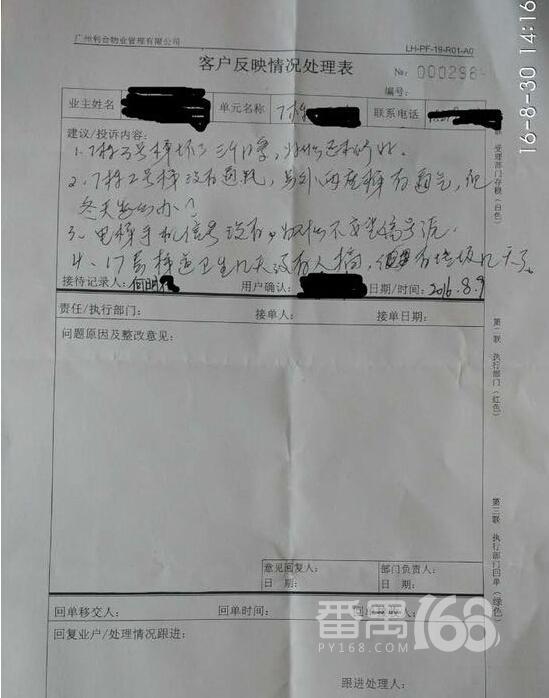 16-8-30 14:16
广州利合物业管理有限公司
LH-PF-19-R01-A0
客户反映情况处理表
№: 000298
编号:
业主姓名
单元名称 7栋
联系电话
建议/投诉内容:
1. 7栋3号梯坏了三个月零,
2. 7栋2号梯没有通气,另外两座梯有通气,
冬天怎么办?
3. 电梯手机信号没有,
4. 17 梯道卫生几天没有人搞, 有垃圾几天了。
接待记录人:
用户确认:
日期/时间: 2016.8.9
责任/执行部门:
接单人:
接单日期:
问题原因及整改意见:
意见回复人:
日 期:
部门负责人:
日 期:
回单移交人:
回单时间:
回单接收人:
回复业户/处理情况跟进:
跟进处理人:
受理部门存根(白色)
第二联 执行部门(红色)
第三联 执行部门回单(绿色)
番禺168
PY168.COM